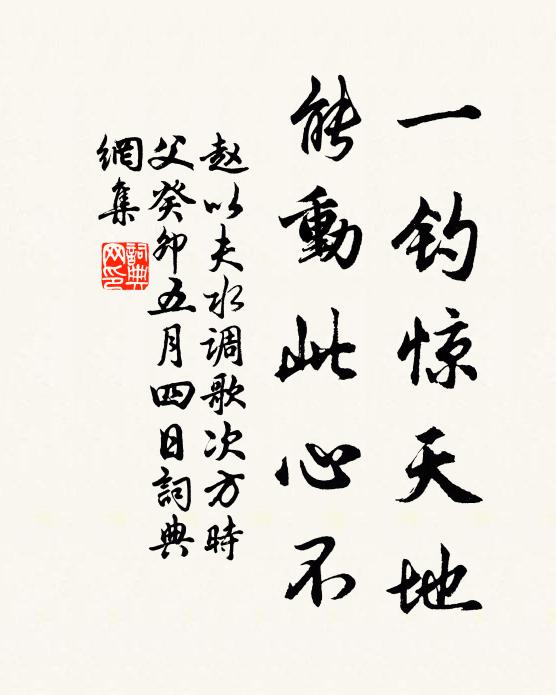 一钓惊天地
能動此心不
赵以夫水调歌次方時
父癸卯五月四日詞典
網集
詞典网印